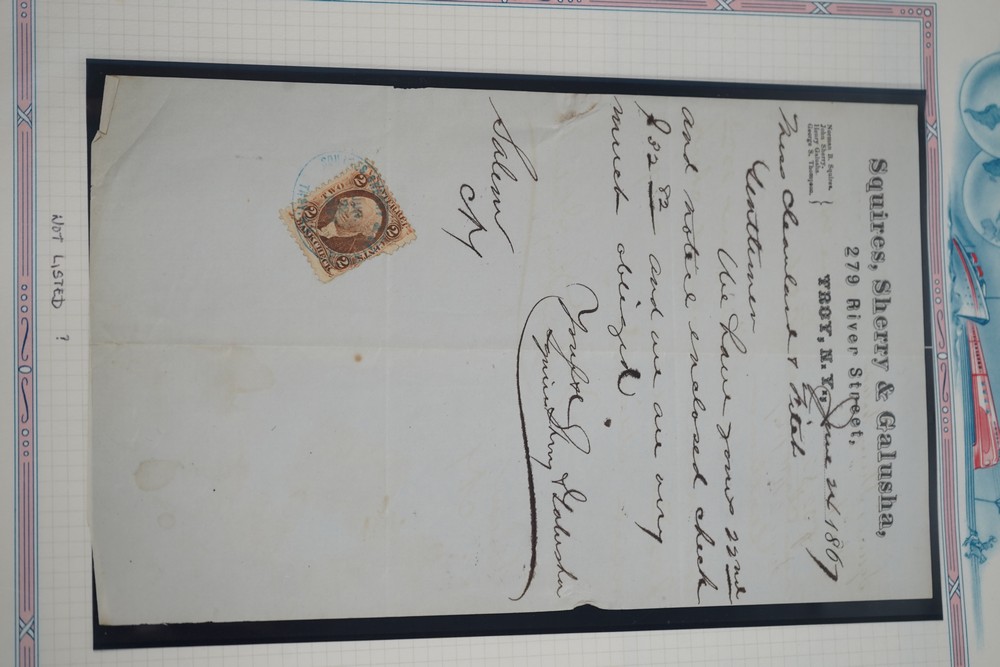 Squires, Sherry & Galusha,
279 River Street,
Norman B. Squires,
John Sherry,
Henry Galusha,
George S. Thompson.
TROY, N. Y., June 24 1867
Mess Cleaveland &
Gentlemen
We have yours 22nd
and notice enclosed check
$ 32 82 and we are very
much obliged.
Yours
Squires Sherry & Galusha
Salem
NY
2
TWO
CENTS
NOT LISTED ?